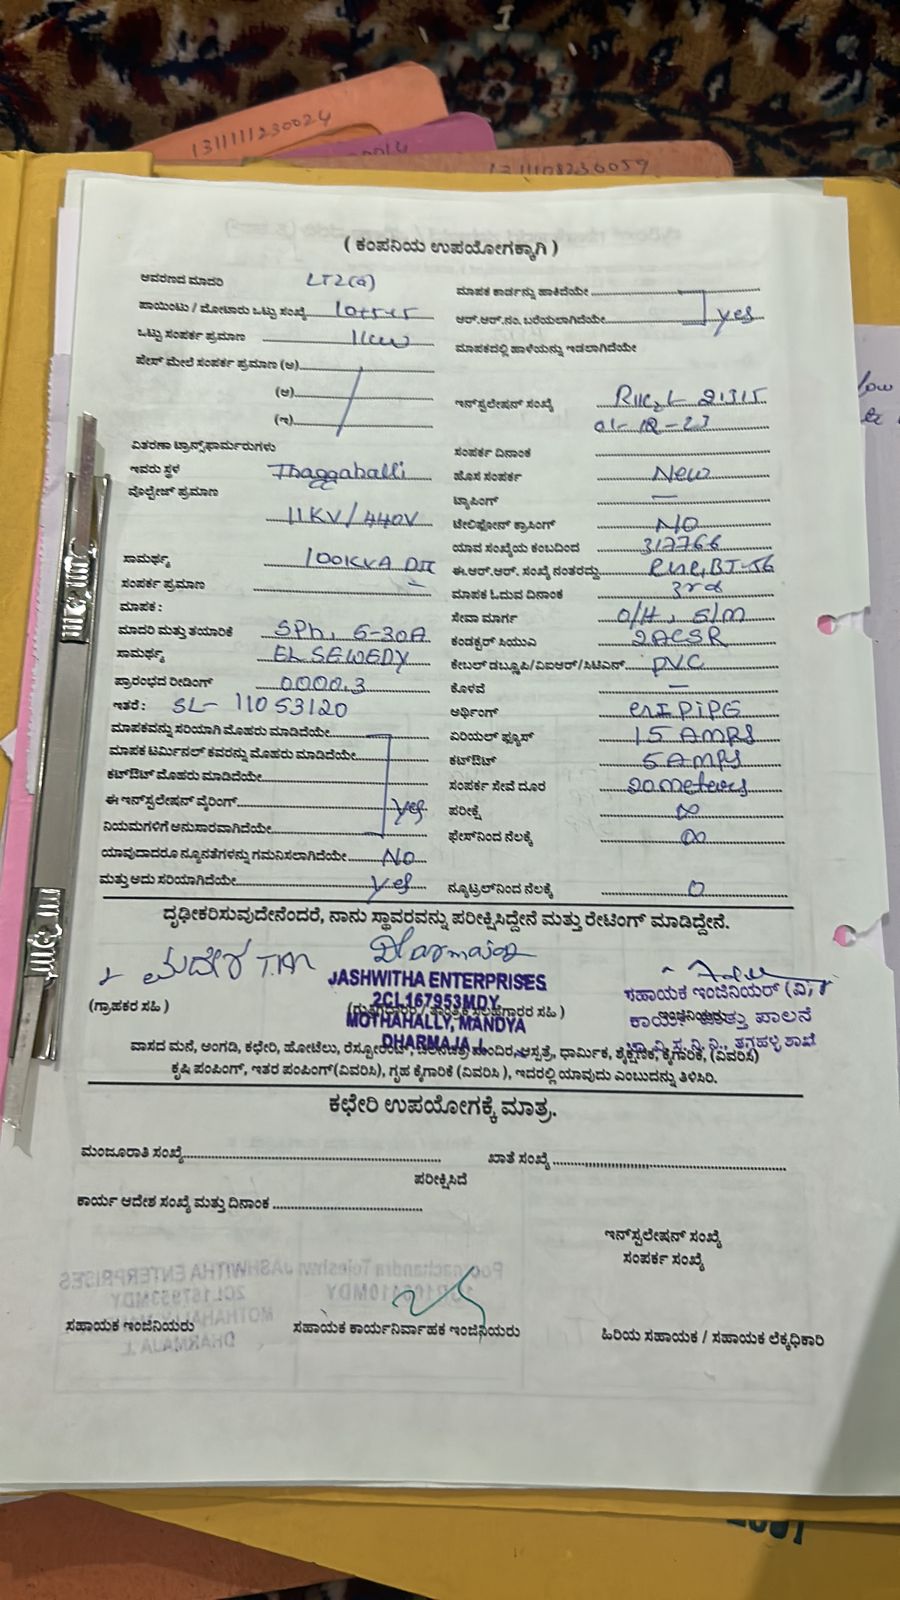 1311111230024
0014
1311108230059
( ಕಂಪನಿಯ ಉಪಯೋಗಕ್ಕಾಗಿ )
ಆವರಣದ ಮಾದರಿ LT2(a)
ಪಾಯಿಂಟು / ಮೋಟಾರು ಒಟ್ಟು ಸಂಖ್ಯೆ
ಒಟ್ಟು ಸಂಪರ್ಕ ಪ್ರಮಾಣ 1kw
ಫೇಸ್ ಮೇಲೆ ಸಂಪರ್ಕ ಪ್ರಮಾಣ (ಅ)
(ಆ)
(ಇ)
ಮಾಪಕ ಕಾರ್ಡನ್ನು ಹಾಕಿದೆಯೇ
ಆರ್.ಆರ್.ನಂ. ಬರೆಯಲಾಗಿದೆಯೇ yes
ಮಾಪಕದಲ್ಲಿ ಹಾಳೆಯನ್ನು ಇಡಲಾಗಿದೆಯೇ
ಇನ್‌ಸ್ಟಲೇಷನ್ ಸಂಖ್ಯೆ 21315
01-12-23
ವಿತರಣಾ ಟ್ರಾನ್ಸ್‌ಫಾರ್ಮರುಗಳು
ಇವರು ಸ್ಥಳ Thaggahalli
ವೊಲ್ಟೇಜ್ ಪ್ರಮಾಣ
11KV/440V
ಸಾಮರ್ಥ್ಯ 100KVA
ಸಂಪರ್ಕ ಪ್ರಮಾಣ
ಮಾಪಕ :
ಮಾದರಿ ಮತ್ತು ತಯಾರಿಕೆ SPh, 5-30A
ಸಾಮರ್ಥ್ಯ EL SEWEDY
ಪ್ರಾರಂಭದ ರೀಡಿಂಗ್ 0000.3
ಇತರೆ : SL- 11053120
ಮಾಪಕವನ್ನು ಸರಿಯಾಗಿ ಮೊಹರು ಮಾಡಿದೆಯೇ
ಮಾಪಕ ಟರ್ಮಿನಲ್ ಕವರನ್ನು ಮೊಹರು ಮಾಡಿದೆಯೇ
ಕಟ್‌ಔಟ್ ಮೊಹರು ಮಾಡಿದೆಯೇ
ಈ ಇನ್‌ಸ್ಟಲೇಷನ್ ವೈರಿಂಗ್ yes
ನಿಯಮಗಳಿಗೆ ಅನುಸಾರವಾಗಿದೆಯೇ
ಯಾವುದಾದರೂ ನ್ಯೂನತೆಗಳನ್ನು ಗಮನಿಸಲಾಗಿದೆಯೇ No
ಮತ್ತು ಅದು ಸರಿಯಾಗಿದೆಯೇ yes
ಸಂಪರ್ಕ ದಿನಾಂಕ
ಹೊಸ ಸಂಪರ್ಕ New
ಟ್ಯಾಪಿಂಗ್ —
ಟೇಲಿಫೋನ್ ಕ್ರಾಸಿಂಗ್ NO
ಯಾವ ಸಂಖ್ಯೆಯ ಕಂಬದಿಂದ 317766
ಈ.ಆರ್.ಆರ್. ಸಂಖ್ಯೆ ನಂತರದ್ದು
ಮಾಪಕ ಓದುವ ದಿನಾಂಕ 3rd
ಸೇವಾ ಮಾರ್ಗ O/H, S/M
ಕಂಡಕ್ಟರ್ ಸಿಯುವಿ 2ACSR
ಕೇಬಲ್ ಡಬ್ಲೂಪಿ/ವಿಐಆರ್/ಸಿಟಿಎಸ್ PVC
ಕೊಳವೆ —
ಅರ್ಥಿಂಗ್ PIPE
ಏರಿಯಲ್ ಫ್ಯೂಸ್ 15 AMPS
ಕಟ್‌ಔಟ್ 5 AMPS
ಸಂಪರ್ಕ ಸೇವೆ ದೂರ 20 meters
ಪರೀಕ್ಷೆ ∞
ಫೇಸ್‌ನಿಂದ ನೆಲಕ್ಕೆ ∞
ನ್ಯೂಟ್ರಲ್‌ನಿಂದ ನೆಲಕ್ಕೆ 0
ದೃಢೀಕರಿಸುವುದೇನೆಂದರೆ, ನಾನು ಸ್ಥಾವರವನ್ನು ಪರೀಕ್ಷಿಸಿದ್ದೇನೆ ಮತ್ತು ರೇಟಿಂಗ್ ಮಾಡಿದ್ದೇನೆ.
Dharmaja
JASHWITHA ENTERPRISES
2CL167953MDY
MOTHAHALLY, MANDYA
DHARMAJA L.
(ಗ್ರಾಹಕರ ಸಹಿ )
ಸಹಾಯಕ ಇಂಜಿನಿಯರ್ (ವಿ),
ವಾಸದ ಮನೆ, ಅಂಗಡಿ, ಕಛೇರಿ, ಹೋಟೆಲು, ಮಂದಿರ, ಆಸ್ಪತ್ರೆ, ಧಾರ್ಮಿಕ, ಶೈಕ್ಷಣಿಕ, ಕೈಗಾರಿಕೆ, (ವಿವರಿಸಿ)
ಕೃಷಿ ಪಂಪಿಂಗ್, ಇತರ ಪಂಪಿಂಗ್(ವಿವರಿಸಿ), ಗೃಹ ಕೈಗಾರಿಕೆ (ವಿವರಿಸಿ ), ಇದರಲ್ಲಿ ಯಾವುದು ಎಂಬುದನ್ನು ತಿಳಿಸಿರಿ.
ಕಛೇರಿ ಉಪಯೋಗಕ್ಕೆ ಮಾತ್ರ.
ಮಂಜೂರಾತಿ ಸಂಖ್ಯೆ ಖಾತೆ ಸಂಖ್ಯೆ
ಪರೀಕ್ಷಿಸಿದೆ
ಕಾರ್ಯ ಆದೇಶ ಸಂಖ್ಯೆ ಮತ್ತು ದಿನಾಂಕ
ಇನ್‌ಸ್ಟಲೇಷನ್ ಸಂಖ್ಯೆ
ಸಂಪರ್ಕ ಸಂಖ್ಯೆ
ಸಹಾಯಕ ಇಂಜಿನಿಯರು ಸಹಾಯಕ ಕಾರ್ಯನಿರ್ವಾಹಕ ಇಂಜಿನಿಯರು ಹಿರಿಯ ಸಹಾಯಕ / ಸಹಾಯಕ ಲೆಕ್ಕಧಿಕಾರಿ